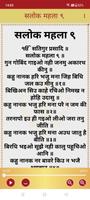 सलोक महला ९
सलोक महला ९
ੴ सतिगुर प्रसादि ॥
गुन गोबिंद गाइओ नही जनमु अकारथ
कीनु ॥
कहु नानक हरि भजु मना जिह बिधि
जल कउ मीनु ॥१॥
बिखिअन सिउ काहे रचिओ निमख न
होहि उदासु ॥
कहु नानक भजु हरि मना परै न जम की
फास ॥२॥
तरनापो इउ ही गइओ लीओ जरा तनु
जीति ॥
कहु नानक भजु हरि मना अउध जातु है
बीति ॥३॥
बिरधि भइओ सूझै नही कालु पहूचिओ
आनि ॥
कहु नानक नर बावरे किउ न भजै